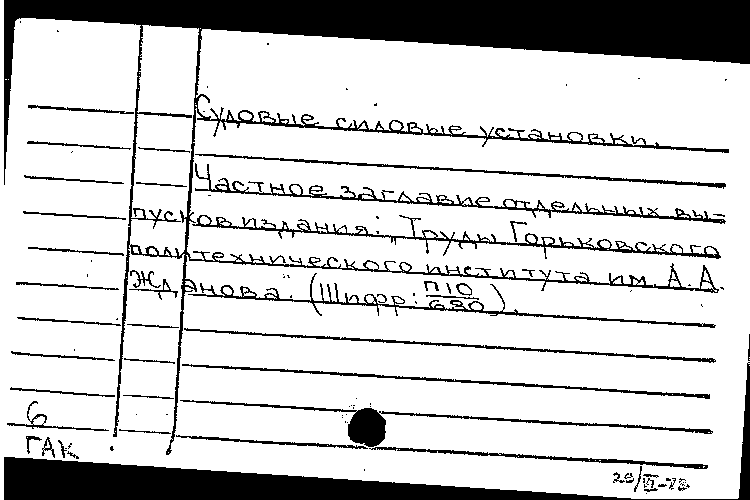 Судовые силовые установки.
Частное заглавие отдельных вы-
пусков издания: „Труды Горьковского
политехнического института им. А.А.
Жданова". (Шифр: П10/680).
6
ГАК